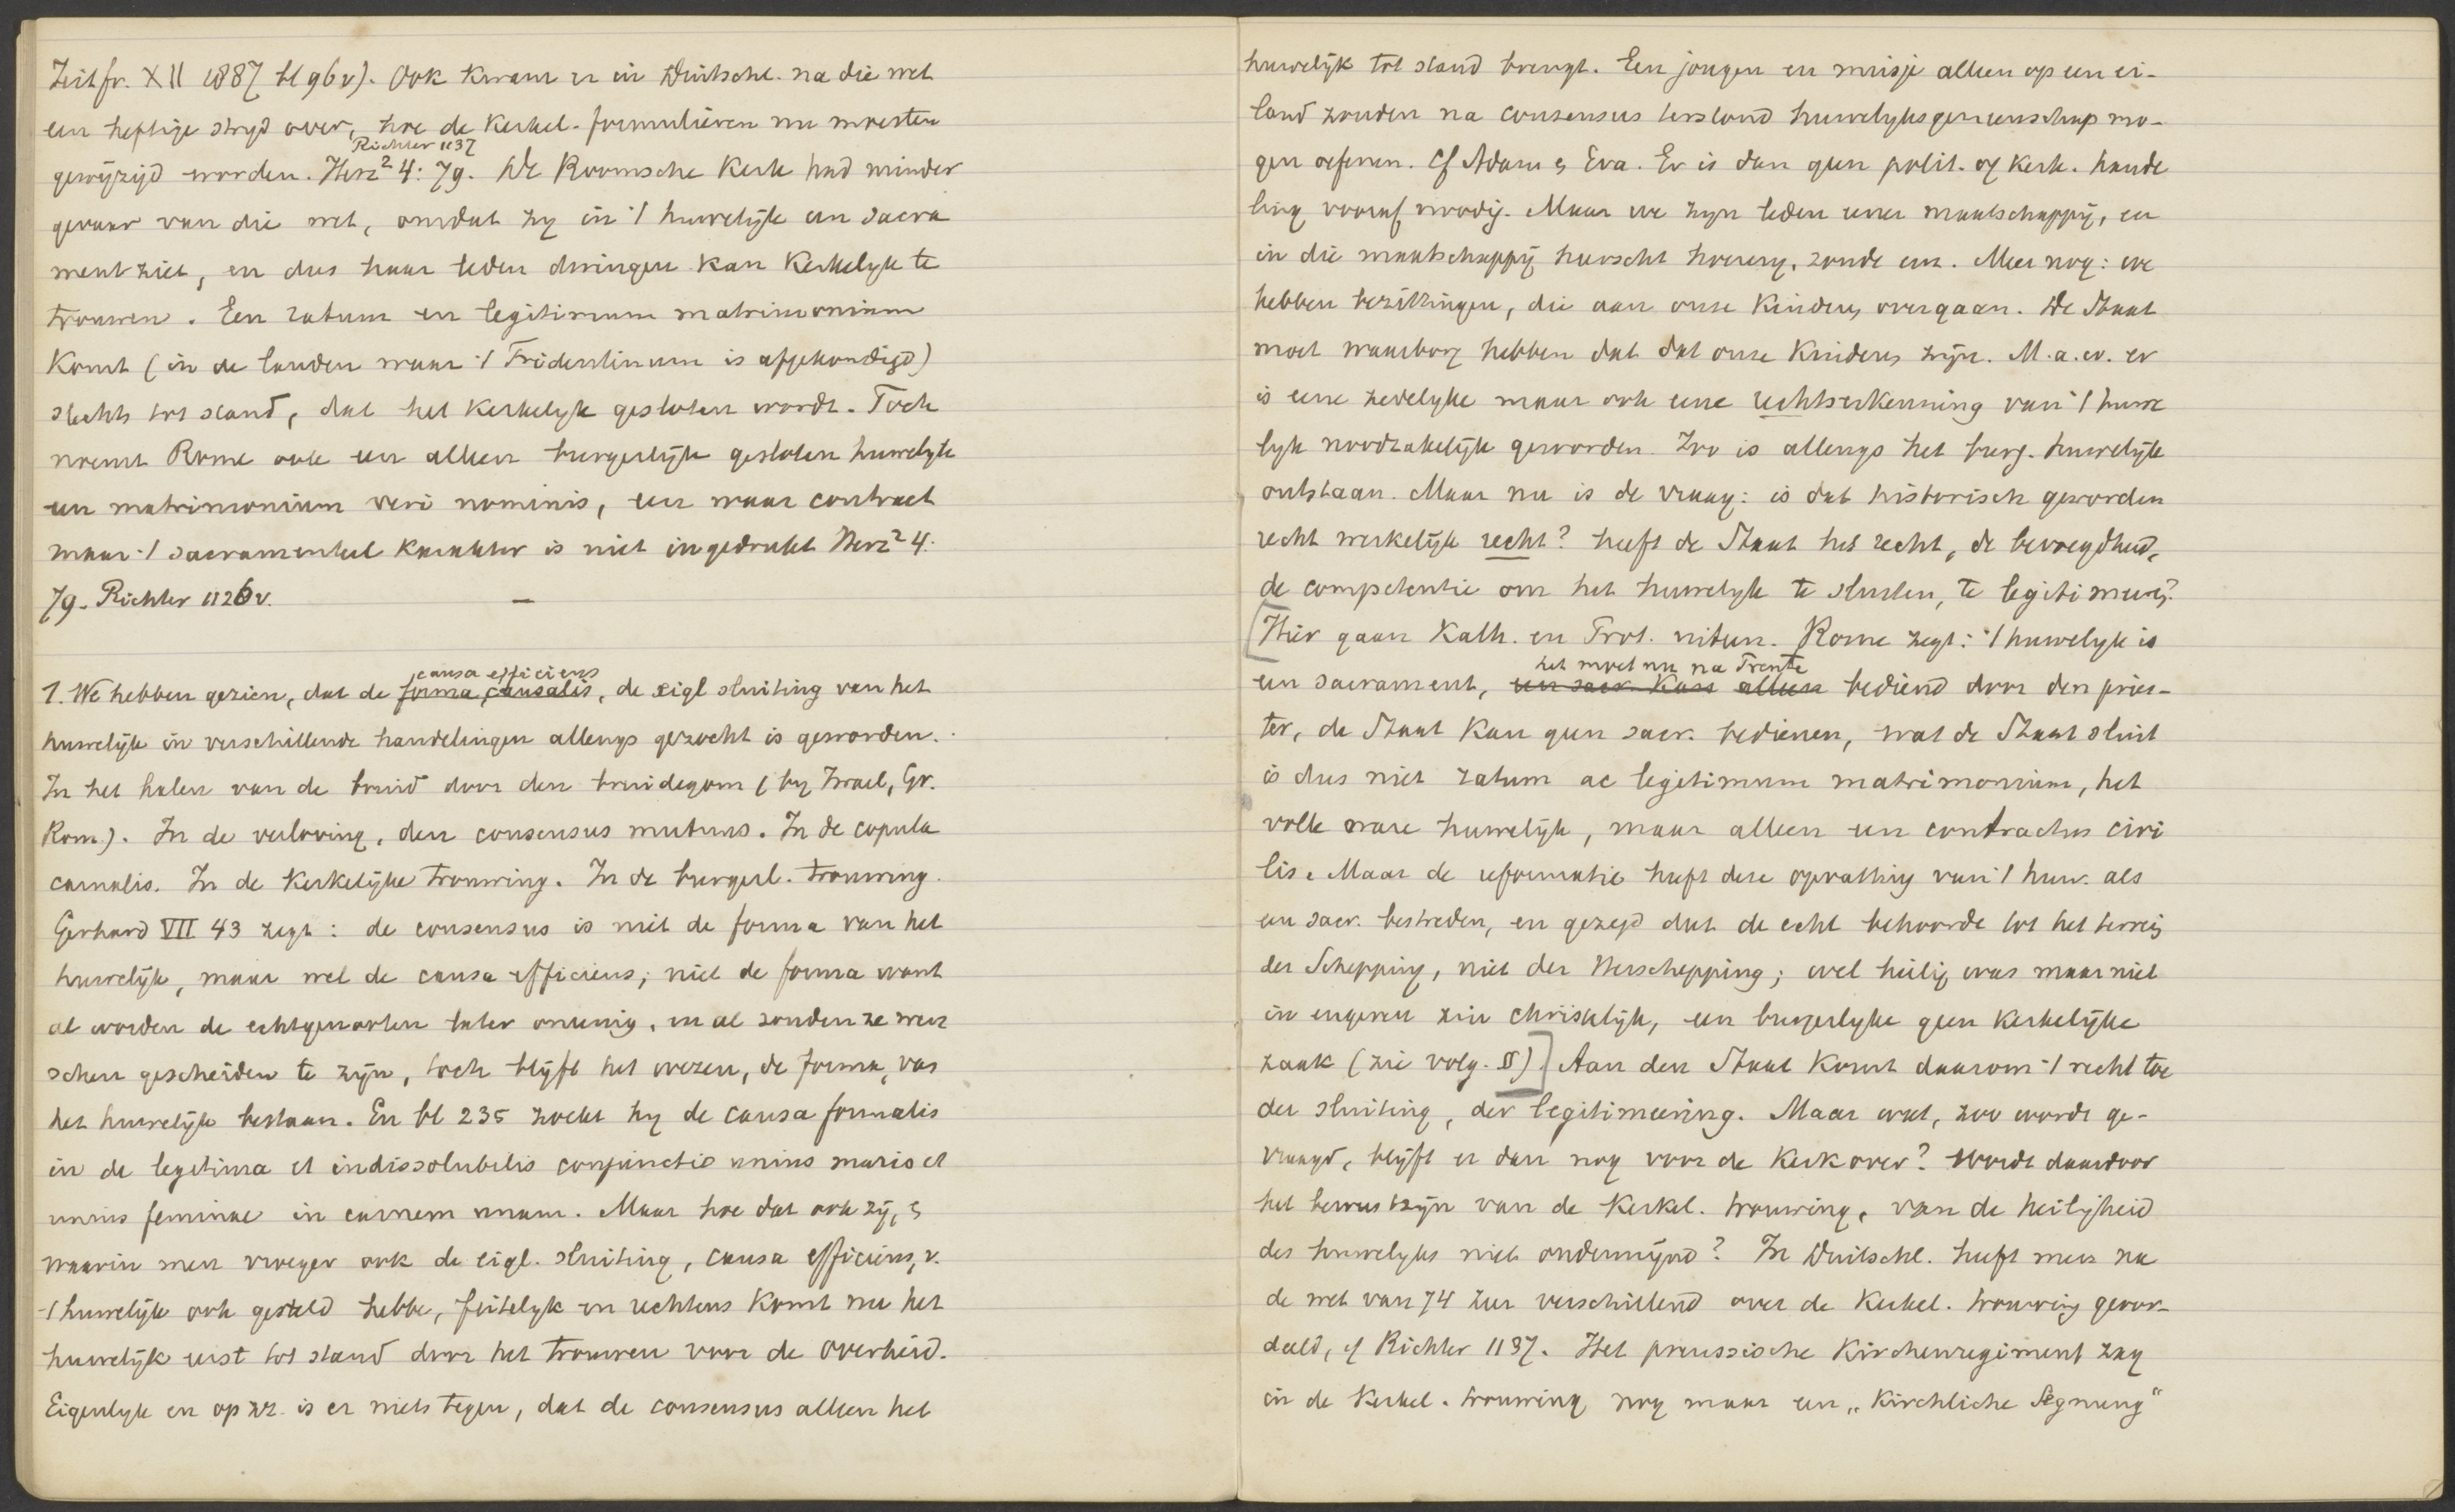 Zeitfr. XII 1887 bl 96v). Ook kwam er in Duitschl. na die wet
een heftige stryd over, hoe de Kerkel. formulieren nu moesten
Richter 1137
gewijzijd worden. Herz² 4: 79. De Roomsche Kerk had minder
gevaar van die wet, omdat zy in 't huwelijk een sacra
ment ziet, en dus haar leden dwingen kan Kerkelyk te
trouwen. Een ratum en legitimum matrimonium
Komt (in de landen waar 't Tridentinum is afgekondigd)
slechts tot stand, dat het Kerkelyk gesloten wordt. Toch
noemt Rome ook een alleen burgerlijk gesloten huwelyk
een matrimonium veri nominis, een waar contract
maar 't sacramenteel karakter is niet ingedrukt Herz² 4:
79. Richter 1126v. —
causa efficiens
1. We hebben gezien, dat de forma, causalis, de eigl sluiting van het
huwelijk in verschillende handelingen allengs gezocht is geworden.
In het halen van de bruid door den bruidegom (by Israel, Gr.
Rom.). In de verloving, den consensus mutuus. In de copula
carnalis. In de Kerkelijke trouwing. In de burgerl. trouwing.
Gerhard VII 43 zegt: de consensus is niet de forma van het
huwelijk, maar wel de causa efficiens; niet de forma want
al worden de echtgenooten later oneenig, en al zouden ze wen
schen gescheiden te zijn, toch blijft het wezen, de forma, van
het huwelijk bestaan. En bl 235 zoekt hy de causa formalis
in de legitima et indissolubilis conjunctio unius maris et
unius feminae in carnem unam. Maar hoe dat ook zij, &
waarin men vroeger ook de eigl. sluiting, causa efficiens, v.
't huwelijk ook gesteld hebbe, feitelyk en rechtens komt nu het
huwelijk eerst tot stand door het trouwen voor de overheid.
Eigenlyk en op zz. is er niets tegen, dat de consensus alleen het
huwelijk tot stand brengt. Een jongen en meisje alleen op een ei-
land zouden na consensus terstond huwelyksgemeenschap mo-
gen oefenen. Cf Adam & Eva. Er is dan geen polit. of Kerk. hande
ling vooraf noodig. Maar we zyn leden eener maatschappij, en
in die maatschappij heerscht hoerery, zonde enz. Meer nog: we
hebben bezittingen, die aan onze Kinderen overgaan. De Staat
moet waarborg hebben dat dat onze Kinderen zijn. M.a.w. er
is eene zedelyke maar ook eene rechtserkenning van 't huwe
lyk noodzakelijk geworden. Zoo is allengs het burg. huwelijk
ontstaan. Maar nu is de vraag: is dat historisch geworden
recht werkelijk recht? heeft de Staat het recht, de bevoegdheid,
de competentie om het huwelyk te sluiten, te legitimeeren?
[Hier gaan Kath. en Prot. uiteen. Rome zegt: 't huwelyk is
het moet nu na Trente
een sacrament, een sacr. kan alleen bediend door den pries-
ter, de Staat kan geen sacr. bedienen, wat de Staat sluit
is dus niet ratum ac legitimum matrimonium, het
volle ware huwelijk, maar alleen een contractus civi
lis. Maar de reformatie heeft deze opvatting van 't huw. als
een sacr. bestreden, en gezegd dat de echt behoorde tot het terrein
der Schepping, niet der Herschepping; wel heilig was maar niet
in engeren zin christelijk, een burgerlyke geen Kerkelijke
zaak (zie volg. II)] Aan den Staat komt daarom 't recht toe
der sluiting, der legitimeering. Maar wat, zoo wordt ge-
vraagd, blijft er dan nog voor de Kerk over? Wordt daardoor
het bewustzijn van de Kerkel. trouwing, van de heiligheid
des huwelyks niet ondermijnd? In Duitschl. heeft men na
de wet van 74 zeer verschillend over de Kerkel. trouwing geoor-
deeld, cf Richter 1137. Het preussische Kirchenregiment zag
in de Kerkel. trouwing nog maar een „Kirchliche Segnung"